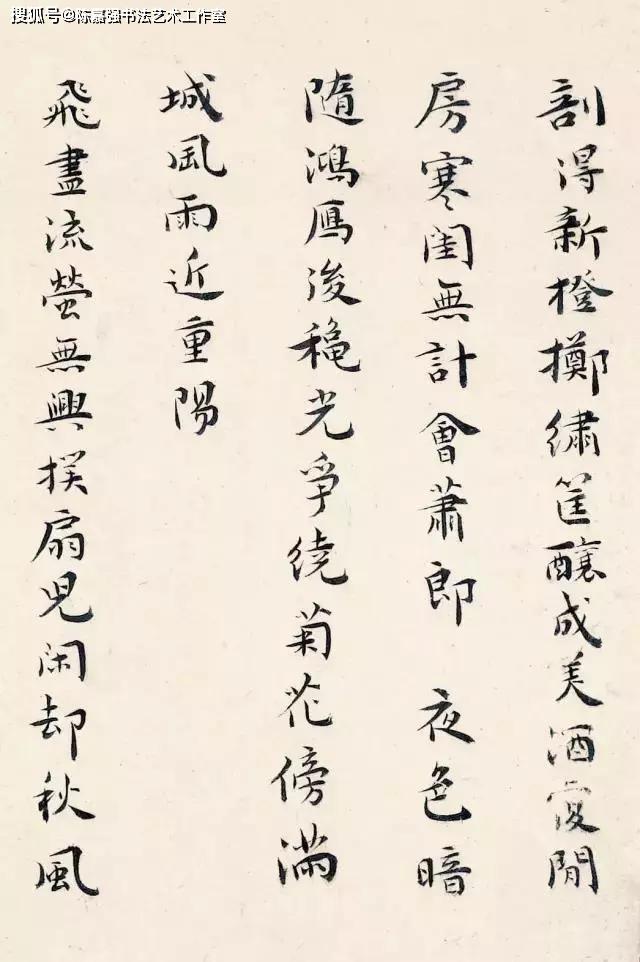 搜狐号@陈嘉强书法艺术工作室
剖得新橙擲繡筐釀成美酒閒
房寒閨無計會蕭郎 夜色暗
隨鴻鴈後穐光爭繞菊花傍滿
城風雨近重陽
飛盡流螢無興撲扇兒閑却秋風